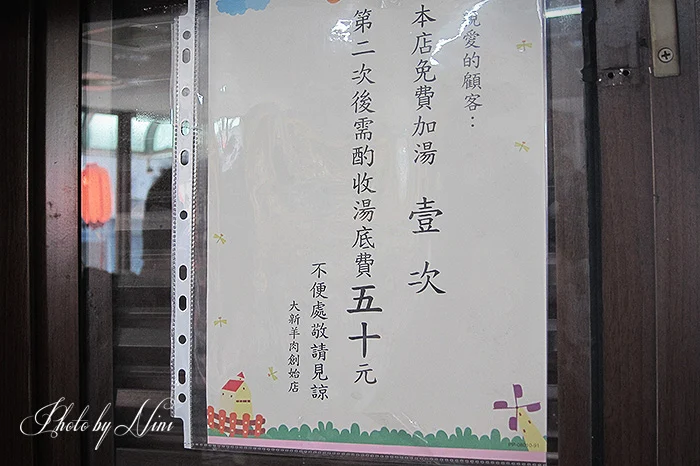 親愛的顧客：
本店免費加湯 壹 次
第二次後需酌收湯底費五十元
不便處敬請見諒
大新羊肉創始店
Photo by Nini